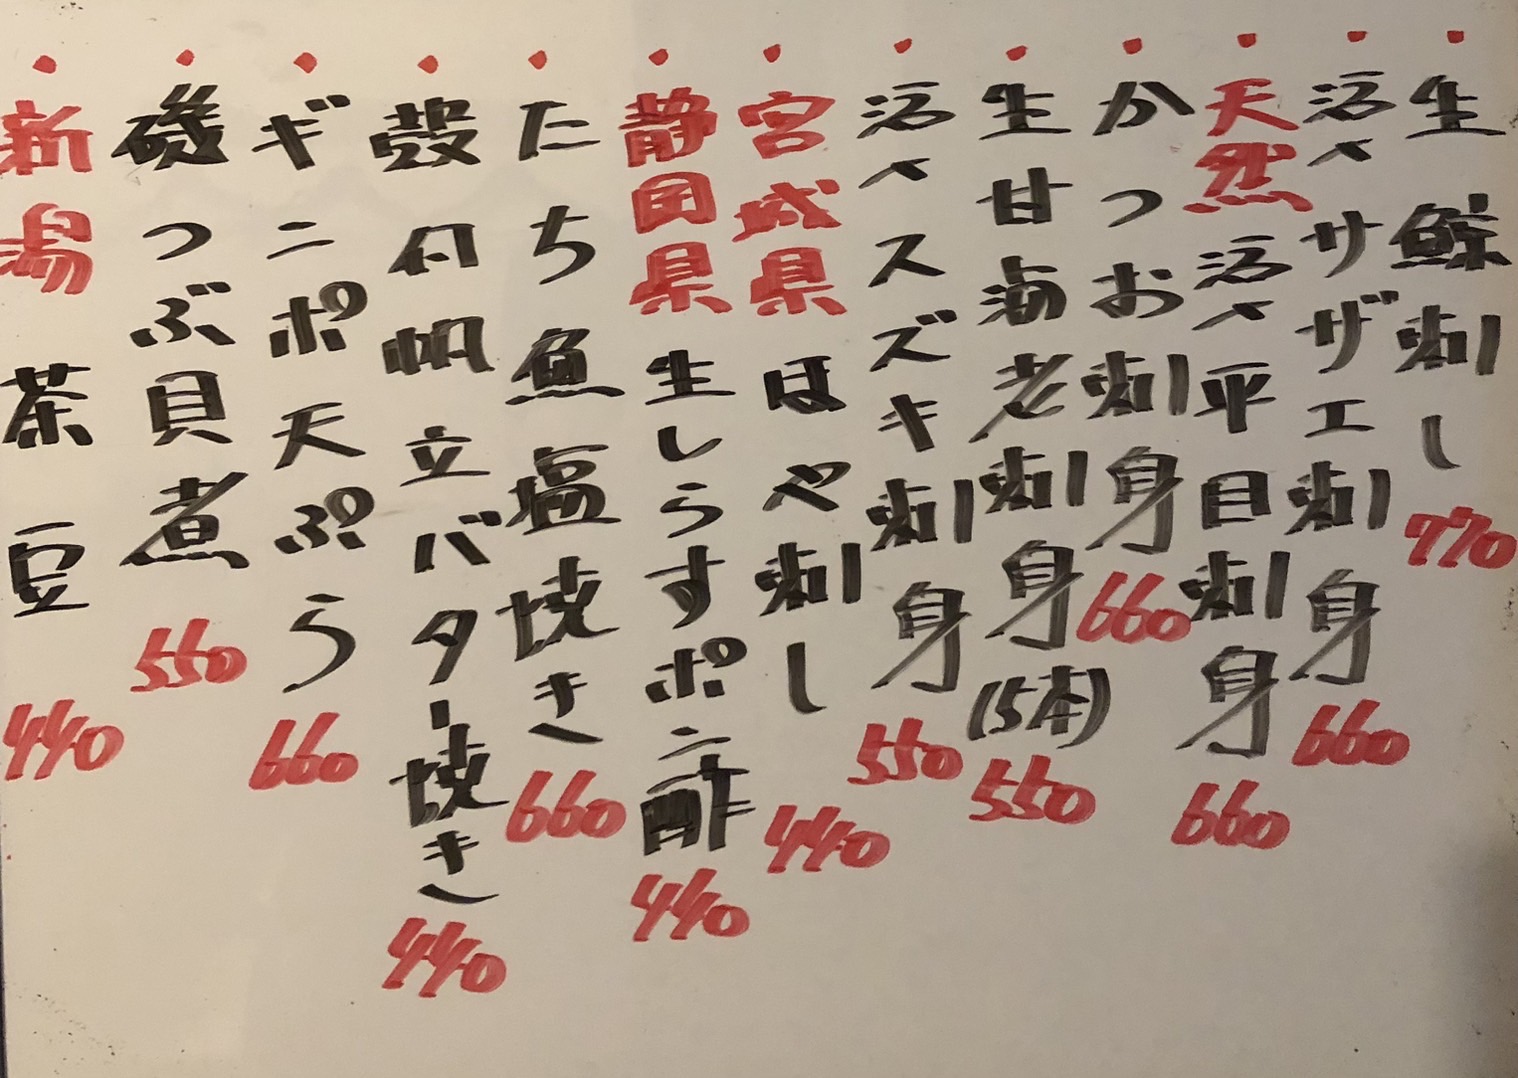 ・生鯨刺し 770
・活〆サザエ刺身 660
・天然活〆平目刺身 660
・かつお刺身 660
・生甘海老刺身(5本) 550
・活〆スズキ刺身 550
・宮城県ほや刺し 440
・静岡県生しらすポン酢 440
・たち魚塩焼き 660
・殻付帆立バター焼き 440
・ギンポ天ぷら 660
・磯つぶ貝煮 550
・新潟茶豆 440